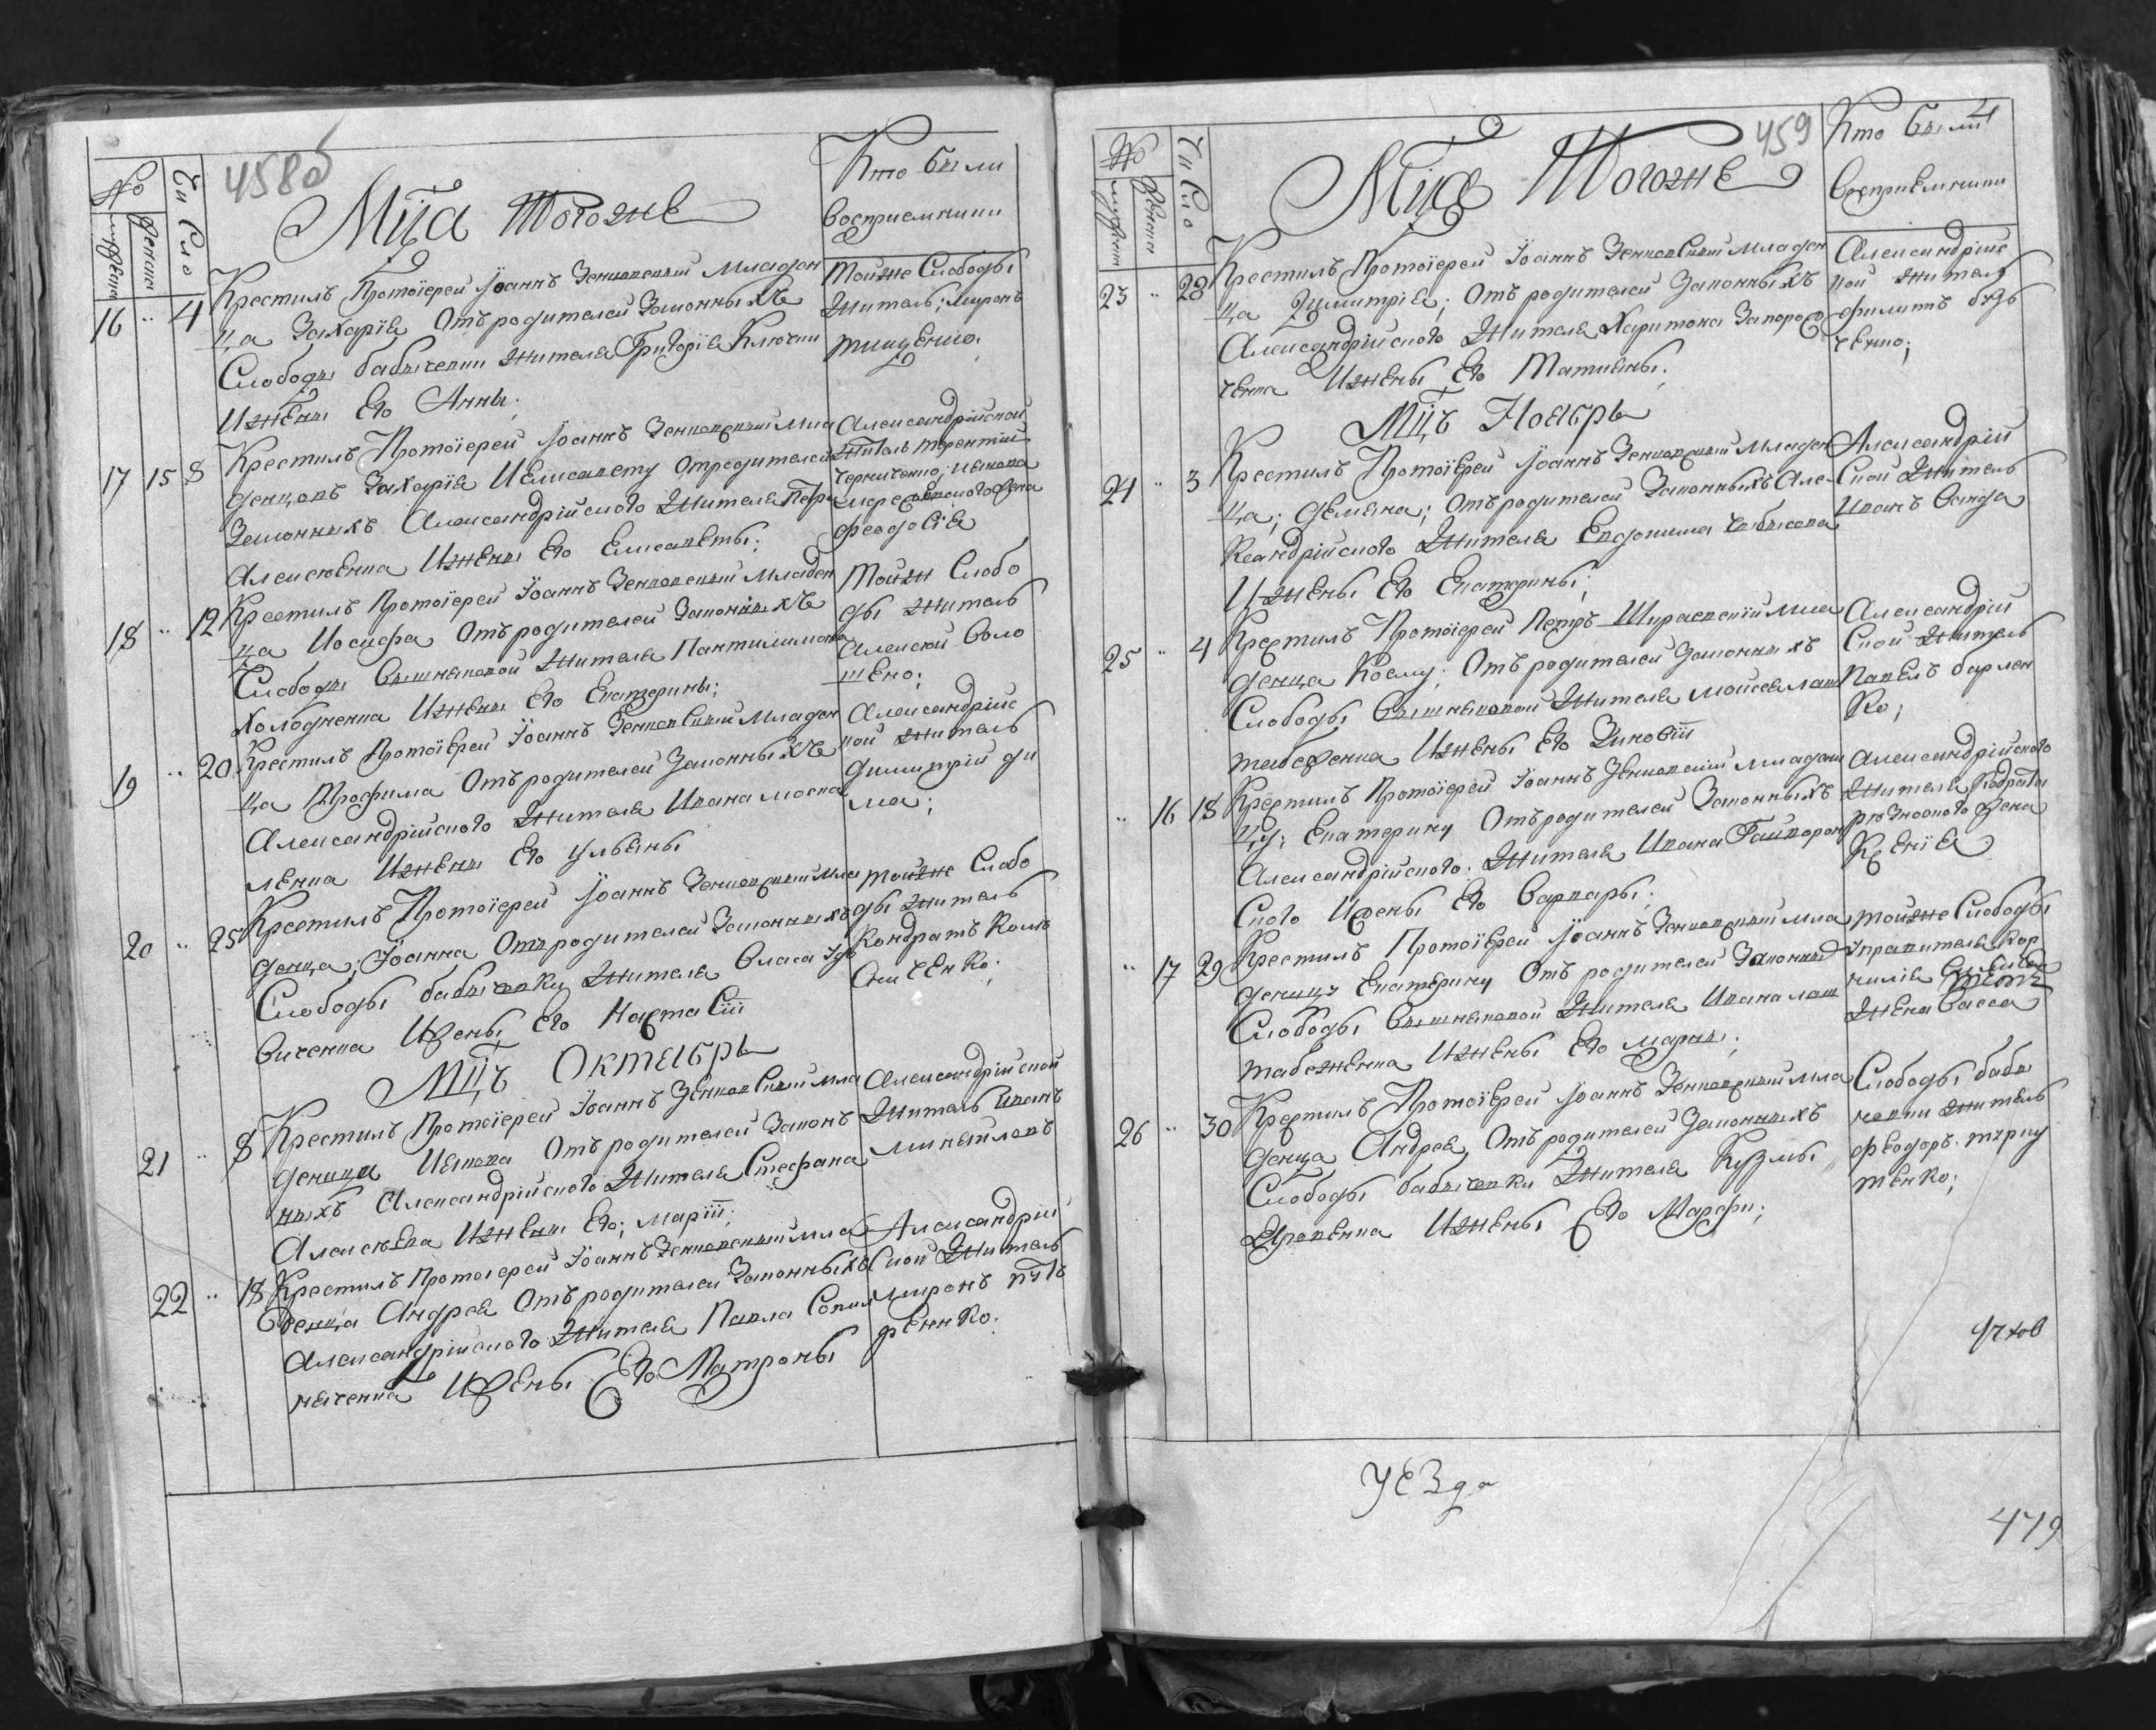 458б
№
Число
мужеска
женска
Мца Тогоже
Кто были
восприемники
16 " 4
Крестилъ Протоїерей Іоаннъ Зеньковский Младен
ца Захарїя Отъ родителей Законныхъ
Слободы бабычевки Жителя Григорїя Ключки
Ижены Его Анны;
Тойже Слободы
Житель; Миронъ
тищенко;
17 15 8
Крестилъ Протоїерей Іоаннъ Зеньковский Мла
денцовъ Захарїя И Елисавету Отродителей
Законныхъ Александрїйского Жителя Петра
Алексеенка Ижены Его Елисаветы;
Александрїйской
Житель терентий
черниченко; Иякова
жена
феодосїя
18 " 12
Крестилъ Протоїерей Іоаннъ Зеньковский Младен
ца Иосифа Отъ родителей Законныхъ
Слободы Вышняковой Жителя Пантилимона
Холодненка Ижены Его Екатерины;
Тойжи Слобо
ды житель
Алексей Воло
шено;
19 " 20
Крестилъ Протоїерей Іоаннъ Зеньковский Младен
ца Трофима Отъ родителей Законныхъ
Александрїйского Жителя Ивана моска
ленка Ижены Его Ульяны
Александрїйс
кой житель
Димитрїй ди
ма;
20 " 25
Крестилъ Протоїерей Іоаннъ Зеньковский Мла
денца; Іоанна Отъ родителей Законныхъ
Слободы бабычевки Жителя Власа Удо
виченка Ижены Его Настасїи
тойже Слобо
ды житель
Кондратъ Коло
Сниченко;
Мцъ Октябрь
21 " 8
Крестилъ Протоїерей Іоаннъ Зеньковский мла
денца Иякова Отъ родителей Закон
ныхъ Александрїйского Жителя Стефана
Алексеева Ижены Его; Марїи;
Александрїйской
Житель Иванъ
михайловъ
22 " 18
Крестилъ Протоїерей Іоаннъ Зеньковский мла
денца Андрея Отъ родителей Законныхъ
Александрїйского Жителя Павла
Ижены Его Матроны
Александрїй
Ской Житель
Миронъ
ренко;
459
№
Число
мужеска
женска
Мца Тогоже
Кто были
восприемники
23 " 28
Крестилъ Протоїерей Іоаннъ Зеньковский Младен
ца Димитрїя; Отъ родителей Законныхъ
Александрїйского Жителя Харитона Запорож
ченка Ижены Его Татияны;
Александрїйс
кой житель
филипъ
ченко;
Мцъ Ноябрь
24 " 3
Крестилъ Протоїерей Іоаннъ Зеньковский Младен
ца; Демяна; Отъ родителей Законныхъ Але
ксандрїйского Жителя Евдокима
Ижены Его Екатерины;
Александрїй
Ской Житель
Иванъ Ванда
25 " 4
Крестилъ Протоїерей Петръ Шираевский Мла
денца Козму; Отъ родителей Законныхъ
Слободы Вышняковой Жителя Моисея Лаш
табеженка Ижены Его Зиновїи
Александрїй
Ской Житель
Павелъ барлен
ко;
" 16 18
Крестилъ Протоїерей Іоаннъ Зеньковский Младени
цу; Екатерину Отъ родителей Законныхъ
Александрїйского Жителя Ивана Гайворон
Ского Ижены Его Варвары;
Александрїйского
Жителя Кодрата
жена
Ксенїя
" 17 29
Крестилъ Протоїерей Іоаннъ Зеньковский мла
деницу Екатерину Отъ родителей Законных
Слободы Вышняковой Жителя Ивана лаш
табеженка Ижены Его Марии;
тойже Слободы
управителя Кор
нилия
Жена Васса
26 " 30
Крестилъ Протоїерей Іоаннъ Зеньковский мла
денца Андрея Отъ родителей Законныхъ
Слободы бабычевки Жителя Кузмы
Ижены Его Марфи;
Слободы бабы
чевки житель
феодоръ
тенко;
УЕЗда
479